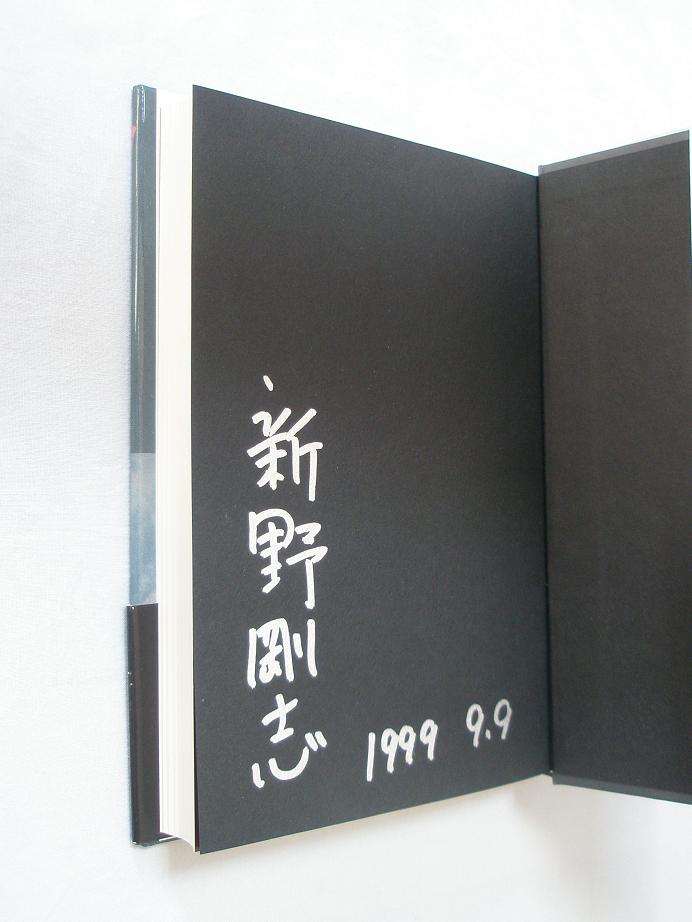 新野剛志
1999 9.9